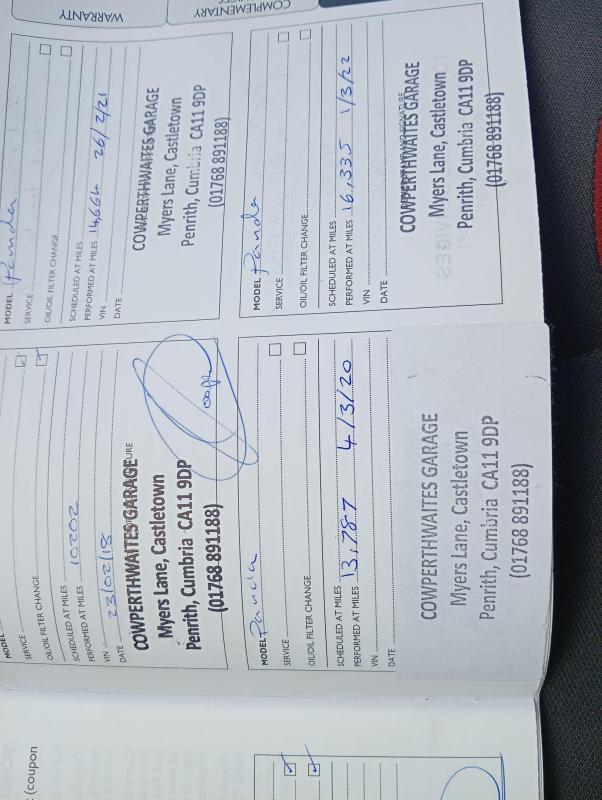 WARRANTY
COMPLEMENTARY
MODEL Panda
SERVICE
OIL/OIL FILTER CHANGE
SCHEDULED AT MILES
PERFORMED AT MILES 14,664 26/2/21
VIN
DATE
COWPERTHWAITES GARAGE
Myers Lane, Castletown
Penrith, Cumbria CA11 9DP
(01768 891188)
MODEL Panda
SERVICE
OIL/OIL FILTER CHANGE
SCHEDULED AT MILES
PERFORMED AT MILES 16,335 1/3/22
VIN
DATE
COWPERTHWAITES GARAGE
Myers Lane, Castletown
Penrith, Cumbria CA11 9DP
(01768 891188)
MODEL
SERVICE
OIL/OIL FILTER CHANGE
SCHEDULED AT MILES 10202
PERFORMED AT MILES
VIN 23/02/18
DATE
COWPERTHWAITES GARAGE
Myers Lane, Castletown
Penrith, Cumbria CA11 9DP
(01768 891188)
MODEL Panda
SERVICE
OIL/OIL FILTER CHANGE
SCHEDULED AT MILES
PERFORMED AT MILES 13,787 4/3/20
VIN
DATE
COWPERTHWAITES GARAGE
Myers Lane, Castletown
Penrith, Cumbria CA11 9DP
(01768 891188)
(coupon